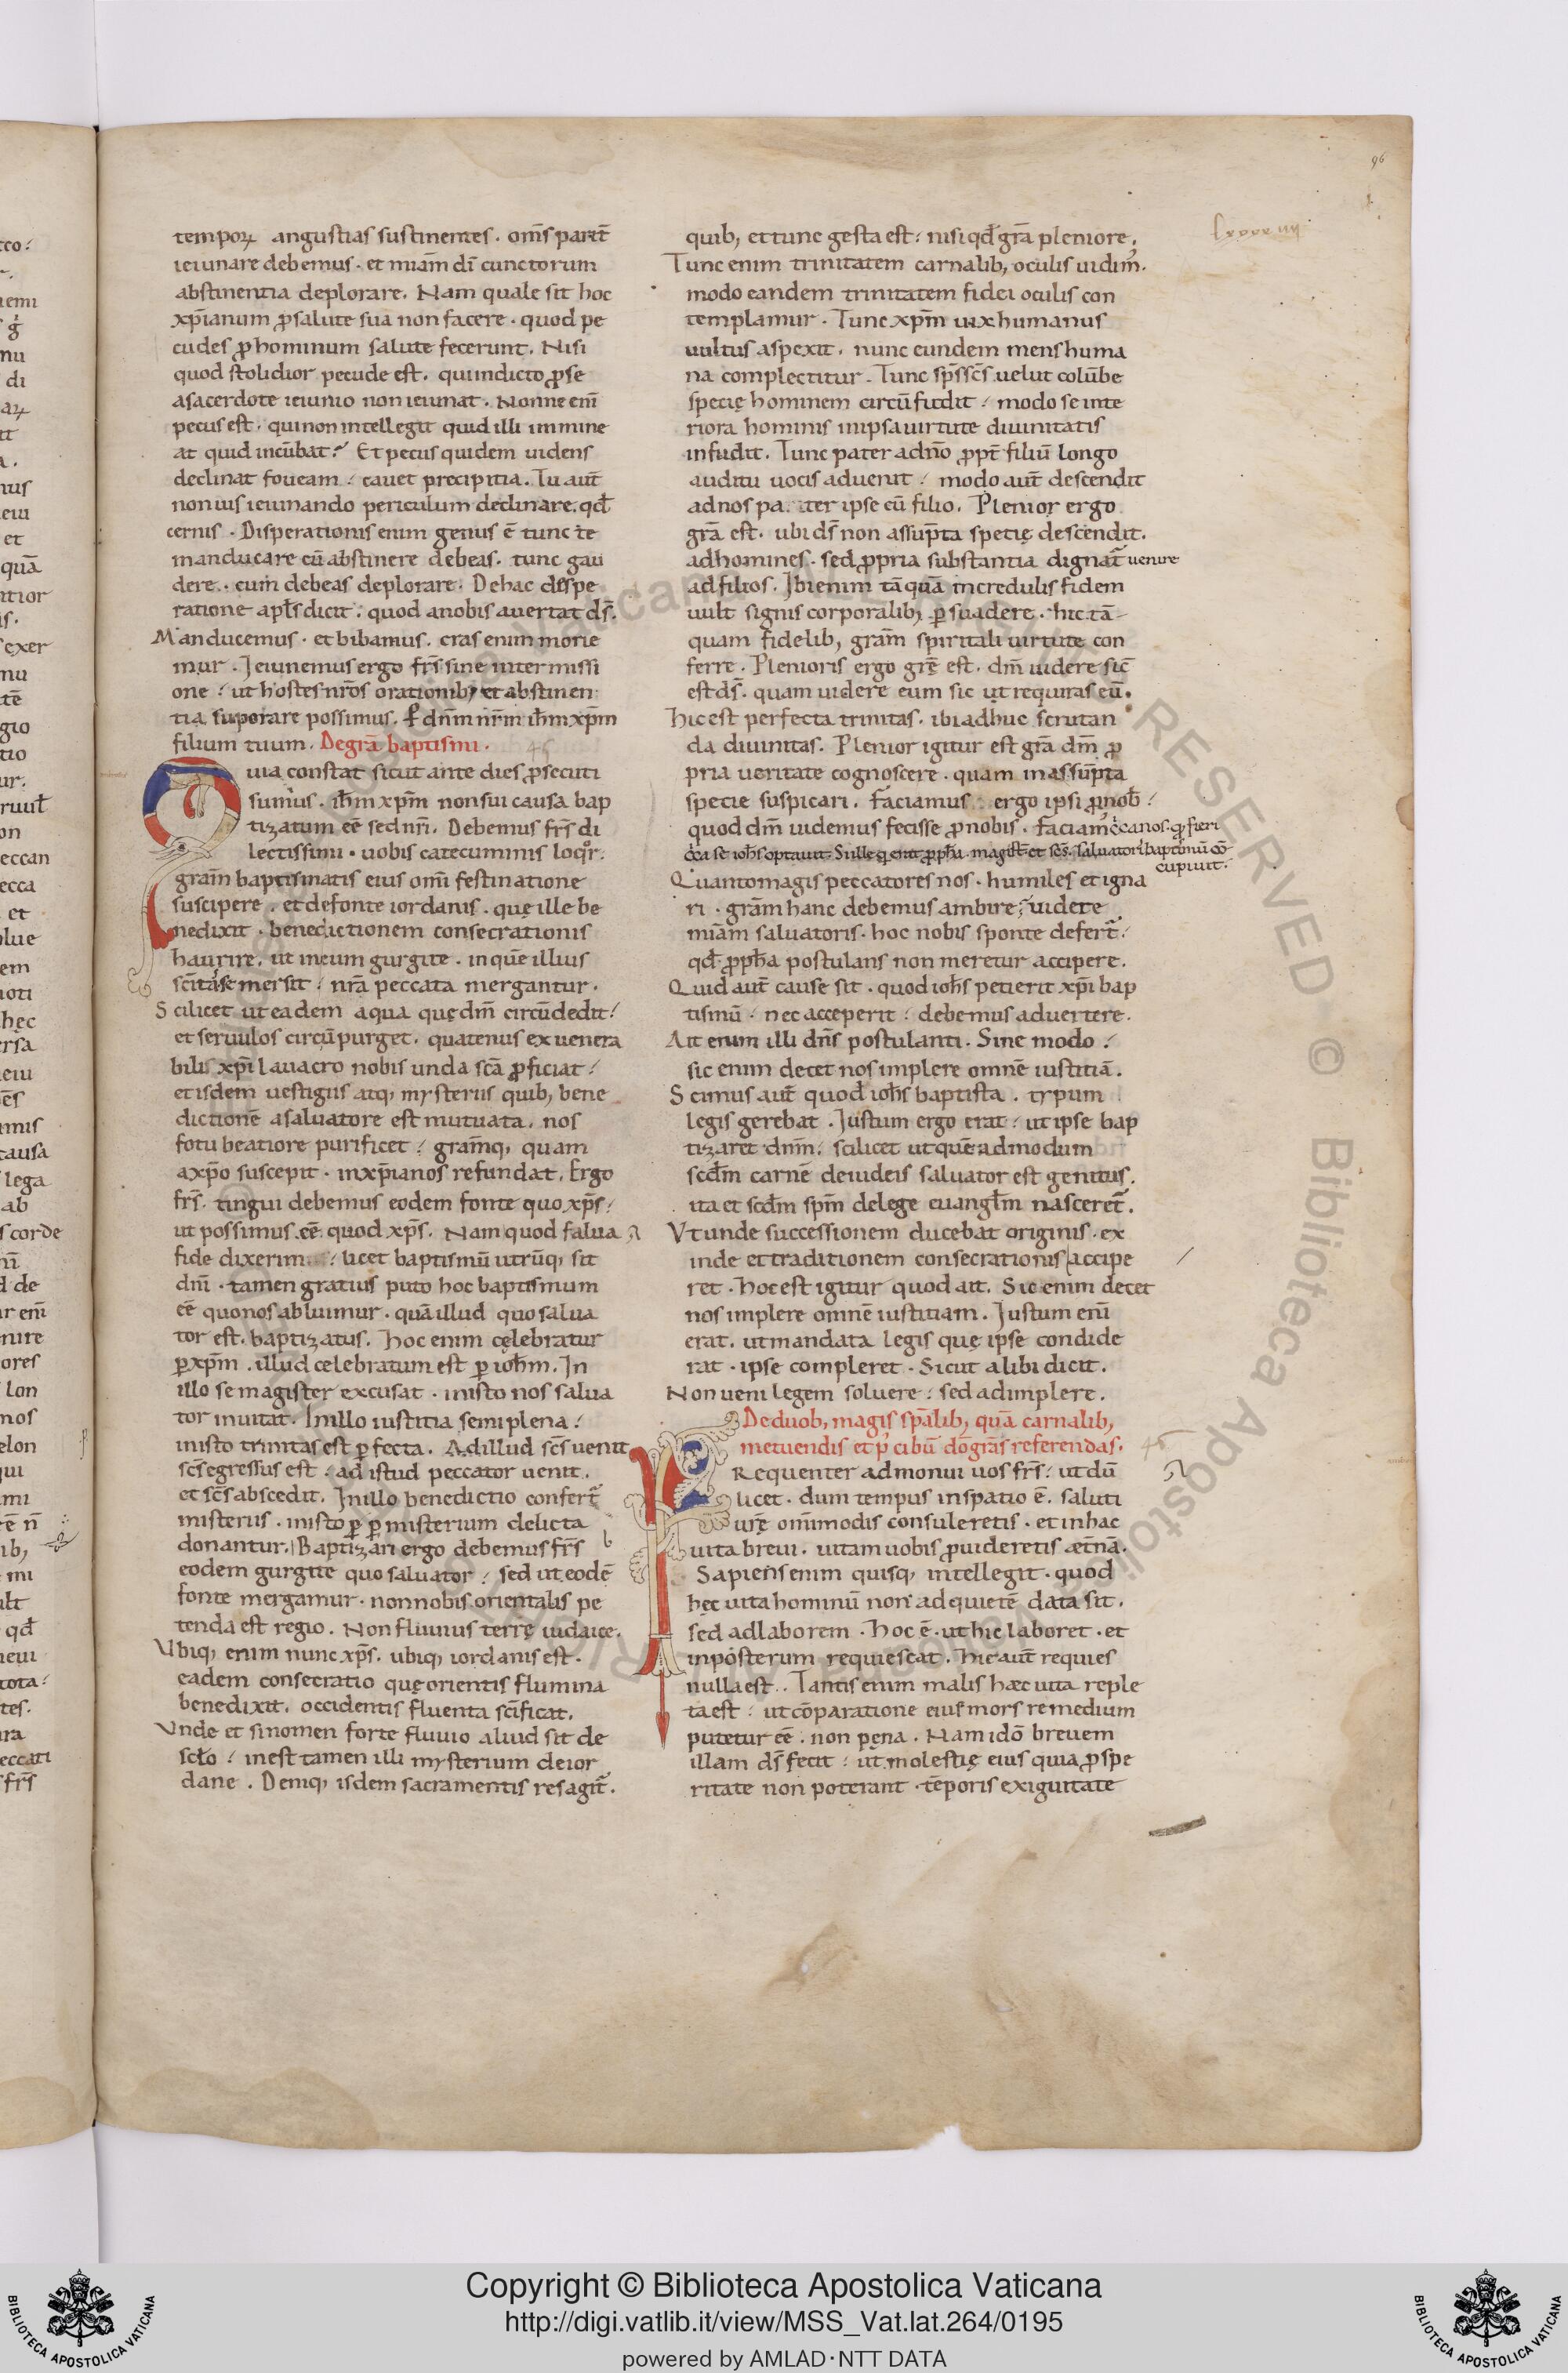 96
lxxxx iiij
temporꝝ angustias sustinentes. om̄s parit̄
ieiunare debemus. et miam̄ dī cunctorum
abstinentia deplorare. Nam quale sit hoc
xp̄ianum ꝓ salute sua non facere. quod pe
cudes ꝓ hominum salute fecerunt. Nisi
quod stolidior pecude est. qui indicto ꝓ se
a sacerdote ieiunio non ieiunat. Nonne enī
pecus est. qui non intellegit quid illi immine
at quid incūbat? Et pecus quidem uidens
declinat foueam; cauet precipitia. Tu aut̄
non uis ieiunando periculum declinare. qđ
cernis. Disperationis enim genus ē tunc te
manducare cū abstinere debeas. tunc gau
dere. cum debeas deplorare. De hac dispe
ratione apl̄s dicit: quod a nobis auertat ds̄.
Manducemus. et bibamus. cras enim morie
mur. Ieiunemus ergo frs̄ sine intermissi
one; ut hostes nr̄os orationib; et abstinen
tia superare possimus. P dn̄m nr̄m ih̄m xp̄m
filium tuum. De gr̄a baptismi. 45
Quia constat sicut ante dies ꝓsecuti
sumus. ih̄m xp̄m non sui causa bap
tizatum eē sed nr̄i. Debemus frs̄ di
lectissimi. uobis catecuminis loqͦr.
gr̄am baptismatis eius omī festinatione
suscipere. et de fonte iordanis. quę ille be
nedixit. benedictionem consecrationis
haurire. ut in eum gurgite. in quē illius
sc̄itas se mersit; nr̄a peccata mergantur.
Scilicet ut eadem aqua quę dm̄ circūdedit;
et seruulos circūpurget. quatenus ex uenera
bili xp̄i lauacro nobis unda sc̄a ꝓficiat;
et isdem uestigiis atq; mysteriis quib; bene
dictionē a saluatore est mutuata. nos
fotu beatiore purificet; gr̄amq; quam
a xp̄o suscepit. in xp̄ianos refundat. Ergo
frs̄. tingui debemus eodem fonte quo xp̄s;
ut possimus eē quod xp̄s. Nam quod salua
fide dixerim; licet baptismū utrūq; sit
dnī. tamen gratius puto hoc baptismum
eē quo nos abluimur. quā illud quo salua
tor est baptizatus. Hoc enim cęlebratur
ꝑ xp̄m. illud celebratum est ꝑ ioh̄m. In
illo se magister excusat. in isto nos salua
tor inuitat. In illo iustitia semiplena;
in isto trinitas est ꝑfecta. Ad illud sc̄s uenit
sc̄s egressus est; ad istud peccator uenit.
et sc̄s abscedit. In illo benedictio confert̄
misteriis. in isto ꝑ ꝑ misterium delicta
donantur. Baptizari ergo debemus frs̄
eodem gurgite quo saluator; sed ut eodē
fonte mergamur. non nobis orientalis pe
tenda est regio. Non fluuius terrę iudaice.
Vbiq; enim nunc xp̄s. ubiq; iordanis est.
eadem consecratio quę orientis flumina
benedixit. occidentis fluenta sc̄ificat.
Vnde et si nomen forte fluuio aliud sit de
scl̄o; inest tamen illi mysterium de ior
dane. Deniq; isdem sacramentis res agit̄.
quib; et tunc gesta est; nisi qđ gr̄a pleniore.
Tunc enim trinitatem carnalib; oculis uidim̄.
modo eandem trinitatem fidei oculis con
templamur. Tunc xp̄m uix humanus
uultus aspexit. nunc eundem mens huma
na complectitur. Tunc sp̄s sc̄s uelut colūbe
specię hominem circūfudit; modo se inte
riora hominis in ipsa uirtute diuinitatis
infudit. Tunc pater ad dn̄o ꝓpt̄ filiū longo
auditu uocis aduenit; modo aut̄ descendit
ad nos pariter ipse cū filio. Plenior ergo
gr̄a est. ubi ds̄ non assūpta spetię descendit.
ad homines. sed ꝓpria substantia dignat̄ uenire
ad filios. Ibi enim tāquā incredulis fidem
uult signis corporalib; ꝑsuadere. hic tā
quam fidelib; gr̄am spiritali uirtute con
ferre. Plenioris ergo gr̄ę est. dm̄ uidere sic̄
est ds̄. quam uidere eum sic ut requiras eū.
Hic est perfecta trinitas. ibi adhuc scrutan
da diuinitas. Plenior igitur est gr̄a dm̄ ꝓ
pria ueritate cognoscere. quam in assūpta
specie suspicari. Faciamus ergo ipsi ꝓ nob̄;
quod dm̄ uidemus fecisse ꝓ nobis. Faciam̄ c̄ca nos. qđ fieri
c̄ca se ioh̄s optauit. Si ille qi erat ꝓph̄a. magist̄ et sc̄s. saluatoris baptismū cō
cupiuit.
Quanto magis peccatores nos. humiles et igna
ri. gr̄am hanc debemus ambire; uidete
miam̄ saluatoris. hoc nobis sponte defert̄;
qđ ꝓph̄a postulans non meretur accipere.
Quid aut̄ cause sit. quod ioh̄s petierit xp̄i bap
tismū; nec acceperit; debemus aduertere.
Ait enim illi dn̄s postulanti. Sine modo;
sic enim decet nos implere omnē iustitiā.
Scimus aut̄ quod ioh̄s baptista. typum
legis gerebat. Iustum ergo erat; ut ipse bap
tizaret dnm̄; scilicet ut quēadmodum
scd̄m carnē de iudeis saluator est genitus.
ita et scd̄m sp̄m de lege euangl̄m nasceret̄.
Vt unde successionem ducebat originis. ex
inde et traditionem consecrationis accipe
ret. Hoc est igitur quod ait. Sic enim decet
nos implere omnē iustitiam. Iustum enī
erat. ut mandata legis quę ipse condide
rat. ipse compleret. Sicut alibi dicit.
Non ueni legem soluere; sed adimplere.
De duob; magis sp̄alib; quā carnalib;
metuendis et p̄ cibū dō gr̄as referendas.
Frequenter admonui uos frs̄; ut dū
licet. dum tempus in spatio ē. saluti
ur̄ę omnimodis consuleretis. et in hac
uita breui. uitam uobis ꝓuideretis ætn̄ā.
Sapiens enim quisq; intellegit. quod
hęc uita hominū non ad quietē data sit.
sed ad laborem. Hoc ē. ut hic laboret. et
in posterum requiescat. Hic aut̄ requies
nulla est. Tantis enim malis hæc uita reple
ta est; ut cōparatione eius mors remedium
putetur eē. non pęna. Nam idō breuem
illam ds̄ fecit; ut molestię eius quia ꝓspe
ritate non poterant. tēporis exiguitate
Copyright © Biblioteca Apostolica Vaticana
http://digi.vatlib.it/view/MSS_Vat.lat.264/0195
powered by AMLAD·NTT DATA
BIBLIOTECA APOSTOLICA VATICANA
BIBLIOTECA APOSTOLICA VATICANA